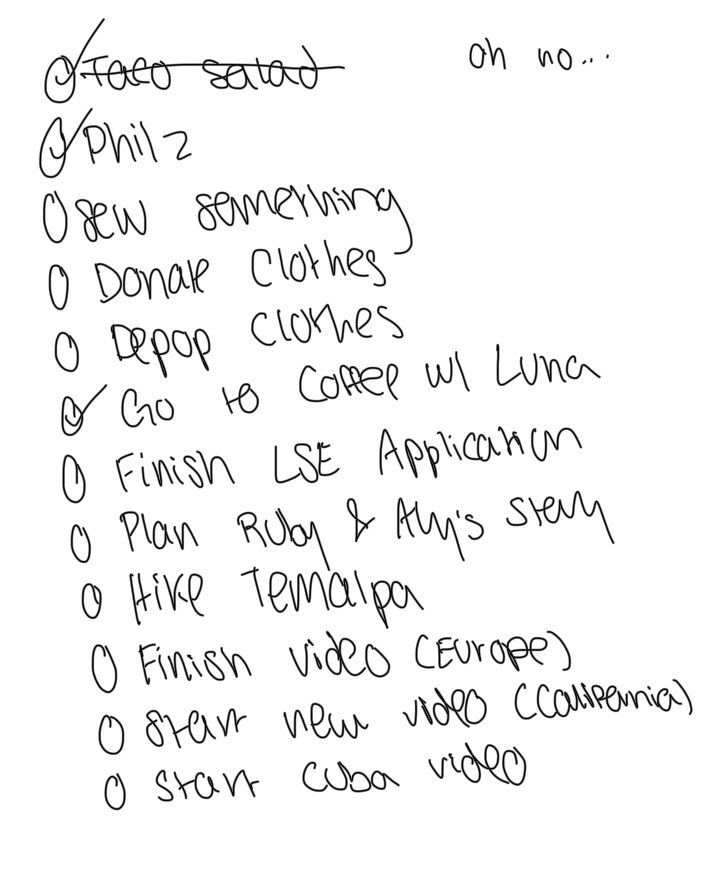 Taco salad
oh no...
Philz
Sew something
Donate Clothes
Depop clothes
Go to Coffee w/ Luna
Finish LSE Application
Plan Ruby & Aly's Story
Hike Temalpa
Finish video (Europe)
Start new video (California)
Start Cuba video